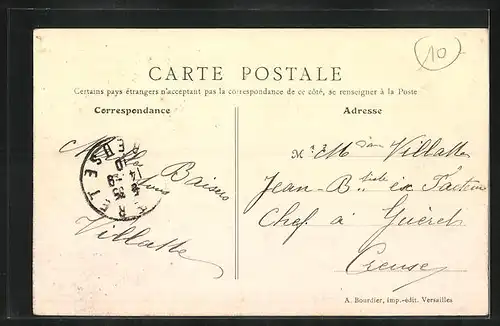 10
CARTE POSTALE
Certains pays étrangers n'acceptant pas la correspondance de ce côté, se renseigner à la Poste
Correspondance
Adresse
Baisers
Villatte
M. Villatte
Jean-Bte ex Facteur
Chef à Guéret
Creuse
A. Bourdier, imp.-édit. Versailles